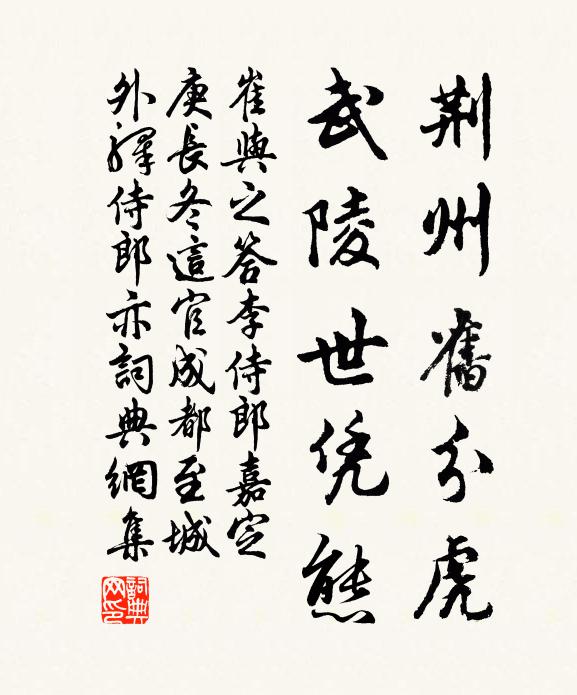 荆州舊分虎
武陵世凭熊
崔與之答李侍郎嘉定
庚長冬這官成都至城
外譯侍郎亦詞典網集
詞典网印